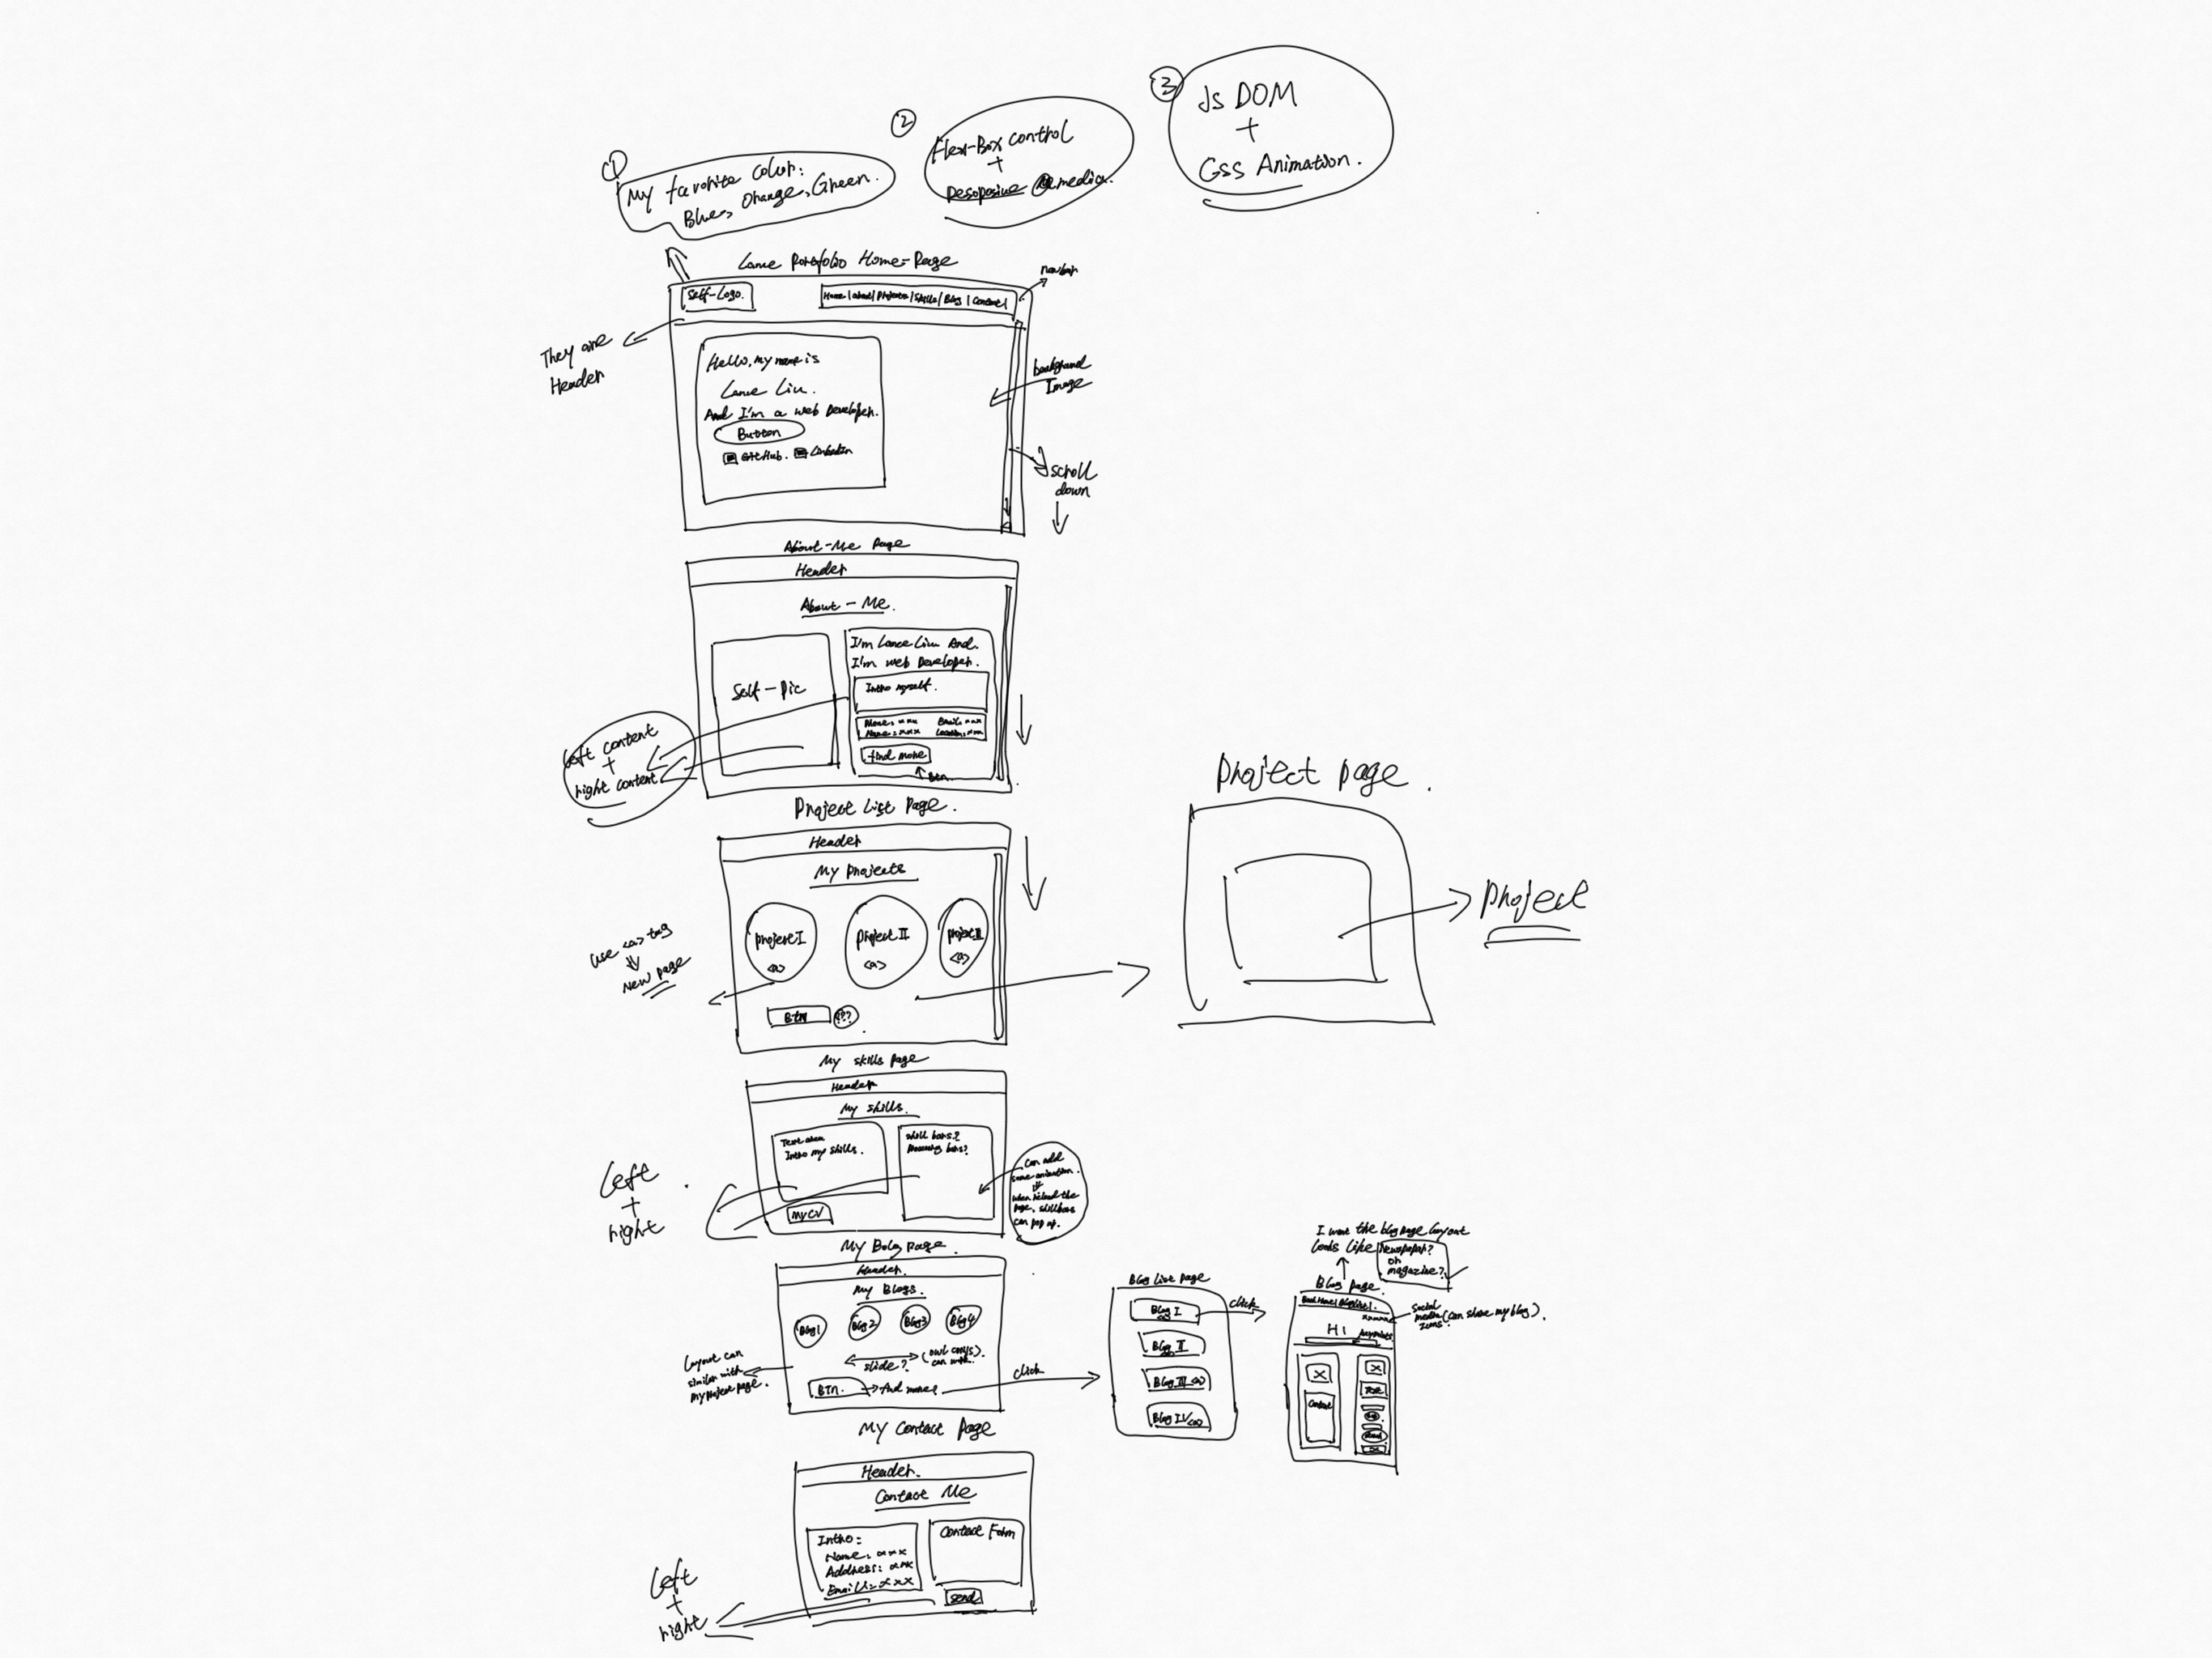 ①
My favorite color:
Blue, Orange, Green.
②
Flex-Box control
+
@media.
③
Js DOM
+
Css Animation.
Lance Portfolio Home-Page
Self-Logo.
Home | About | Projects | Skills | Blog | Contact |
navbar
They are
Header
Hello, my name is
Lance Liu.
And I'm a web Developer.
Button
GitHub. LinkedIn
background
Image
scroll
down
About-Me Page
Header
About-Me.
Self-Pic
I'm Lance Liu And.
I'm web Developer.
Intro myself.
Name: xxx Email: xxx
Name: xxx Location: xxx
find more
Btn
left content
+
right content
Project List Page.
Header
My Projects
Project I
<a>
Project II
<a>
Project III
<a>
Btn
???
use <a> tag
New page
Project page.
Project
My skills Page
Header
My skills.
Text area
Intro my skills.
skill bars?
My CV
Can add
some animation.
when reload the
page, skillbars
can pop up.
Left
+
right
My Bolg page.
Header.
My Blogs.
Blog1
Blog2
Blog3
Blog4
slide?
BTn.
And more
click
Layout can
similar with
my project page.
Blog List page
Blog I
<a>
Blog II
Blog III <a>
Blog IV <a>
click
I want the blog page layout
looks like Newspaper?
or
magazine?
Blog page.
Social
media (can share my blog).
Icons
H1
Content
My Contact Page
Header.
Contact Me
Intro:
Name: xxx
Address: xxx
Email: xxx
Contact Form
send
Left
+
right